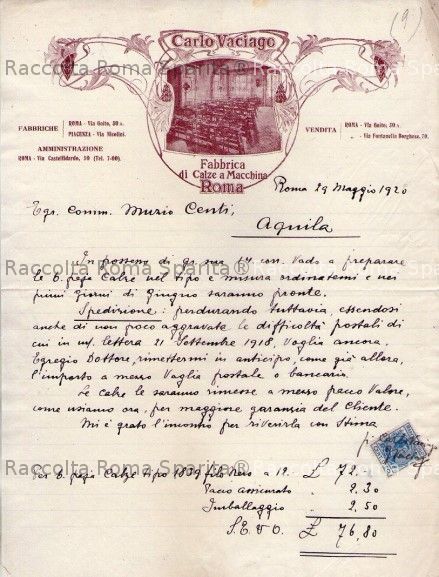 (9)
Carlo Vaciago
Raccolta Roma Sparita®
FABBRICHE
ROMA - Via Goito, 50 a.
PIACENZA - Via Nicolini.
AMMINISTRAZIONE
ROMA - Via Castelfidardo, 50 (Tel. 7-00).
VENDITA
ROMA - Via Goito, 50 a.
- Via Fontanella Borghese, 70.
Fabbrica
di Calze a Macchina
Roma
Roma 29 Maggio 1920
Egr. Comm. Muzio Centi,
Aquila
In possesso di gs. sua 17 corr. Vado a preparare
le 6 paja Calze nel tipo e misura ordinatemi e nei
primi giorni di Giugno saranno pronte.
Spedizione: perdurando tuttavia, essendosi
anche di non poco aggravate le difficoltà postali di
cui in mf. lettera 21 Settembre 1918, Voglia ancora,
Egregio Dottore, rimettermi in anticipo, come già allora,
l'importo a mezzo Vaglia postale o bancaria.
Le calze le saranno rimesse a mezzo pacco Valore,
come usiamo ora, per maggiore garanzia del Cliente.
Mi è grato l'incontro per riverirla con Stima
Per 6 paja Calze tipo 1809 filo nero a 12. £ 72.-
Pacco assicurato " 2.30
Imballaggio " 2.50
S.E. & O. £ 76.80